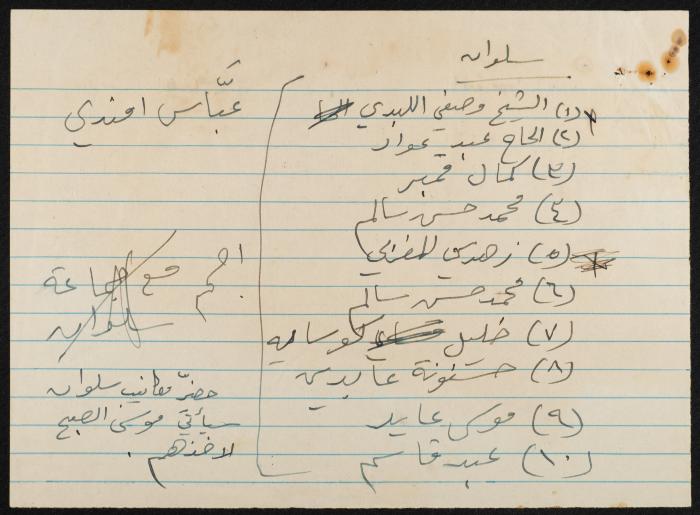 سلوان
(١) الشيخ وصفي اللبدي
(٢) الحاج عبد عواد
(٣) كمال قمبر
(٤) محمد حسن سالم
(٥) زهدي المغربي
(٦) محمد حسن سالم
(٧) خليل
(٨) حسونة عابدي
(٩) موسى عايد
(١٠) عبد قاسم
عبّاس افندي
مع جماعة
سلوان
حضّر مكاتيب سلوان
سيأتي موسى الصبيح
لاخذهم.